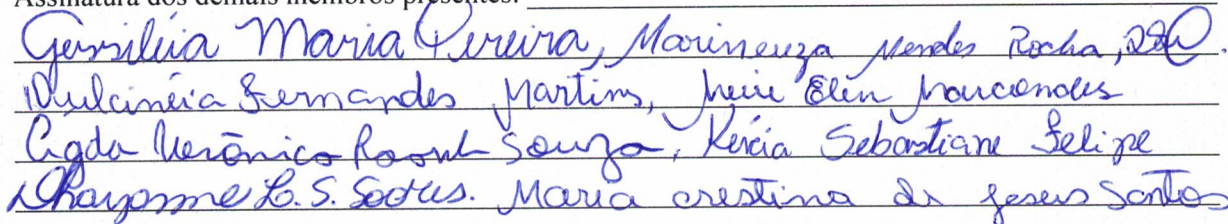 Assinatura dos demais membros presentes:
Gersiléia Maria Pereira, Marineuza Mendes Rocha,
Dulcinéia Fernandes Martins, Meire Elen
Verônica Souza, Kércia Sebastiane Felipe
L. S. Maria crestina de Jesus Santos